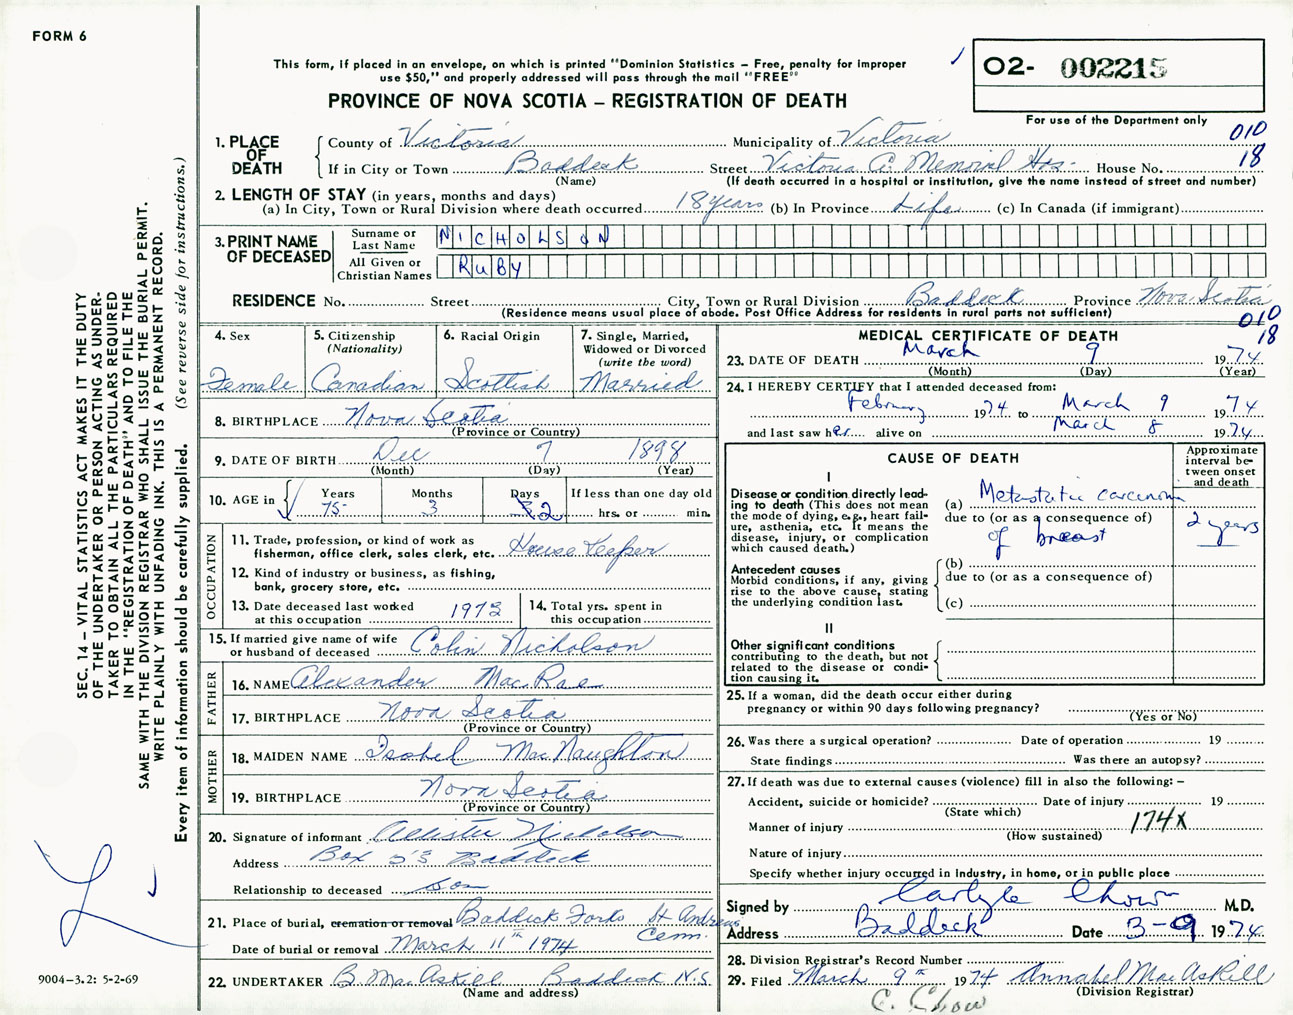 FORM 6
This form, if placed in an envelope, on which is printed "Dominion Statistics – Free, penalty for improper
use $50," and properly addressed will pass through the mail "FREE"
PROVINCE OF NOVA SCOTIA – REGISTRATION OF DEATH
O2- 002215
For use of the Department only
010
18
1. PLACE OF DEATH County of Victoria Municipality of Victoria
If in City or Town Baddeck Street Victoria Co. Memorial Hos. House No.
(Name) (If death occurred in a hospital or institution, give the name instead of street and number)
2. LENGTH OF STAY (in years, months and days)
(a) In City, Town or Rural Division where death occurred 18 years (b) In Province Life (c) In Canada (if immigrant)
3. PRINT NAME OF DECEASED Surname or Last Name NICHOLSON
All Given or Christian Names RUBY
RESIDENCE No. Street City, Town or Rural Division Baddeck Province Nova Scotia
(Residence means usual place of abode. Post Office Address for residents in rural parts not sufficient)
010
18
4. Sex 5. Citizenship (Nationality) 6. Racial Origin 7. Single, Married, Widowed or Divorced (write the word)
Female Canadian Scottish Married
8. BIRTHPLACE Nova Scotia
(Province or Country)
9. DATE OF BIRTH Dec 7 1898
(Month) (Day) (Year)
10. AGE in Years Months Days If less than one day old
75 3 2 hrs. or min.
OCCUPATION
11. Trade, profession, or kind of work as
fisherman, office clerk, sales clerk, etc. House Keeper
12. Kind of industry or business, as fishing,
bank, grocery store, etc.
13. Date deceased last worked at this occupation 1973 14. Total yrs. spent in this occupation
15. If married give name of wife
or husband of deceased Colin Nicholson
FATHER
16. NAME Alexander MacRae
17. BIRTHPLACE Nova Scotia
(Province or Country)
MOTHER
18. MAIDEN NAME Isobel MacNaughton
19. BIRTHPLACE Nova Scotia
(Province or Country)
20. Signature of informant Allister Nicholson
Address Box 53 Baddeck
Relationship to deceased Son
21. Place of burial, cremation or removal Baddeck Forks St Andrews Cem.
Date of burial or removal March 11th 1974
22. UNDERTAKER B. MacAskill Baddeck N.S.
(Name and address)
MEDICAL CERTIFICATE OF DEATH
23. DATE OF DEATH March 9 1974
(Month) (Day) (Year)
24. I HEREBY CERTIFY that I attended deceased from:
February 1974 to March 9 1974
and last saw her alive on March 8 1974
CAUSE OF DEATH
Approximate interval between onset and death
I
Disease or condition directly lead-
ing to death (This does not mean
the mode of dying, e.g., heart fail-
ure, asthenia, etc. It means the
disease, injury, or complication
which caused death.)
(a) Metastatic carcinoma
due to (or as a consequence of)
of breast
2 years
Antecedent causes
Morbid conditions, if any, giving
rise to the above cause, stating
the underlying condition last.
(b)
due to (or as a consequence of)
(c)
II
Other significant conditions
contributing to the death, but not
related to the disease or condi-
tion causing it.
25. If a woman, did the death occur either during
pregnancy or within 90 days following pregnancy?
(Yes or No)
26. Was there a surgical operation? Date of operation 19
State findings Was there an autopsy?
27. If death was due to external causes (violence) fill in also the following: –
Accident, suicide or homicide? Date of injury 19
(State which)
Manner of injury 174X
(How sustained)
Nature of injury
Specify whether injury occurred in industry, in home, or in public place
Signed by Carlyle Chow M.D.
Address Baddeck Date 3-9 1974
28. Division Registrar's Record Number
29. Filed March 9th 1974 Annabel MacAskill
(Division Registrar)
C. Chow
SEC. 14 – VITAL STATISTICS ACT MAKES IT THE DUTY
OF THE UNDERTAKER OR PERSON ACTING AS UNDER-
TAKER TO OBTAIN ALL THE PARTICULARS REQUIRED
IN THE "REGISTRATION OF DEATH" AND TO FILE THE
SAME WITH THE DIVISION REGISTRAR WHO SHALL ISSUE THE BURIAL PERMIT.
WRITE PLAINLY WITH UNFADING INK. THIS IS A PERMANENT RECORD.
Every item of information should be carefully supplied. (See reverse side for instructions.)
9004-3.2: 5-2-69